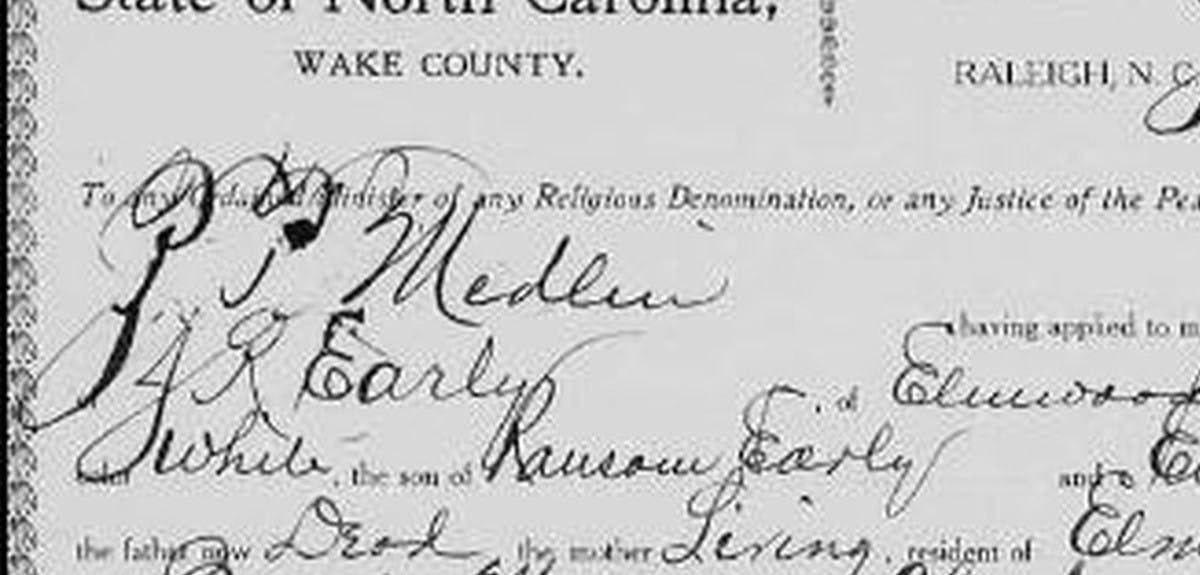 State of North Carolina,
WAKE COUNTY.
RALEIGH, N. C.
To any Ordained Minister of any Religious Denomination, or any Justice of the Pea
Medlin
having applied to m
J R Early, of Elmwood
White, the son of Ransom Early and
the father now Dead, the mother Living, resident of Elm